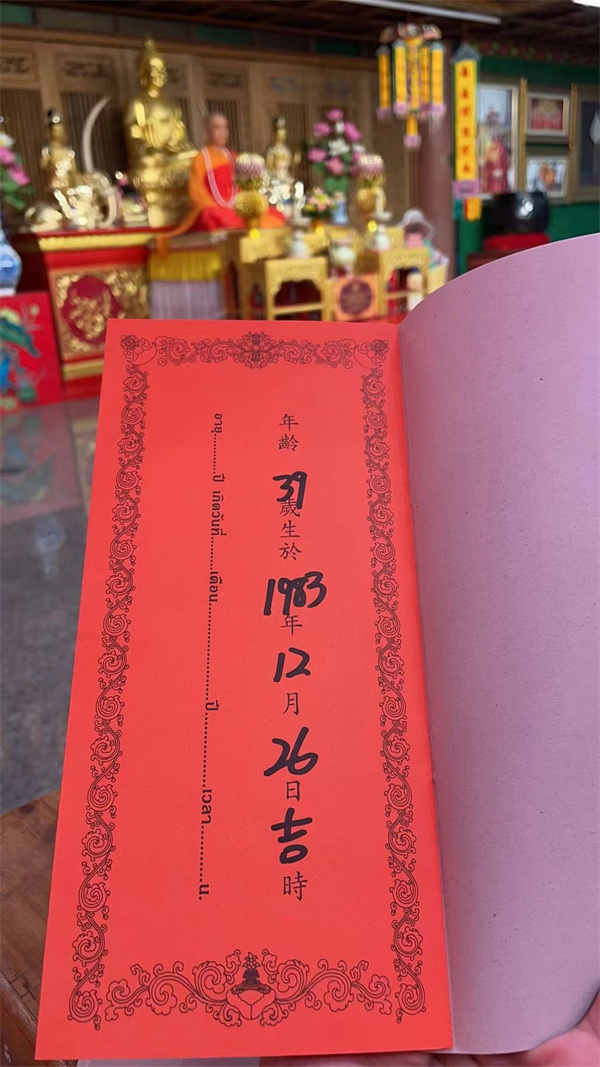 年齡 39 歲生於 1983 年 12 月 26 日 吉 時
อายุ..........ปี เกิดวันที่..........เดือน....................ปี..........เวลา..........น.